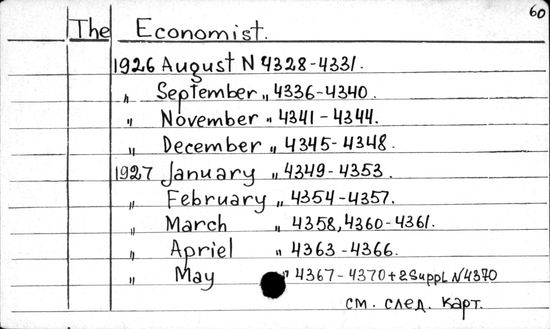 60
The Economist.
1926 August N 4328-4331.
" September " 4336-4340.
" November " 4341-4344.
" December " 4345-4348.
1927 January " 4349-4353.
" February " 4354-4357.
" March " 4358, 4360-4361.
" Apriel " 4363-4366.
" May " 4367-4370+2Suppl N4370
см. след. карт.